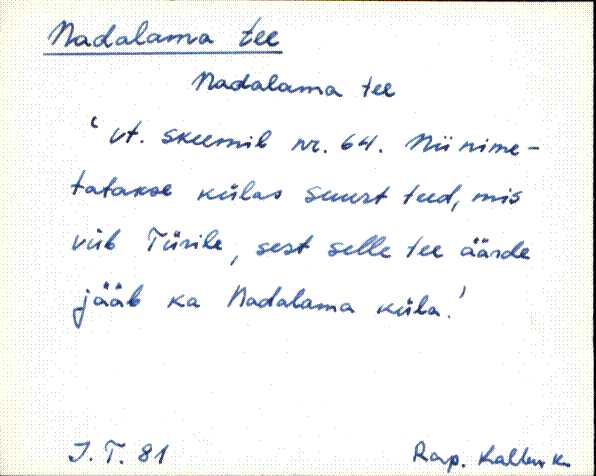 Nadalama tee
Nadalama tee
‘ vt. skeemil nr. 64. Nii nime-
tatakse külas suurt teed, mis
viib Türile, sest selle tee äärde
jääb ka Nadalama küla.’
J. T. 81
Rap. Kalbu k.